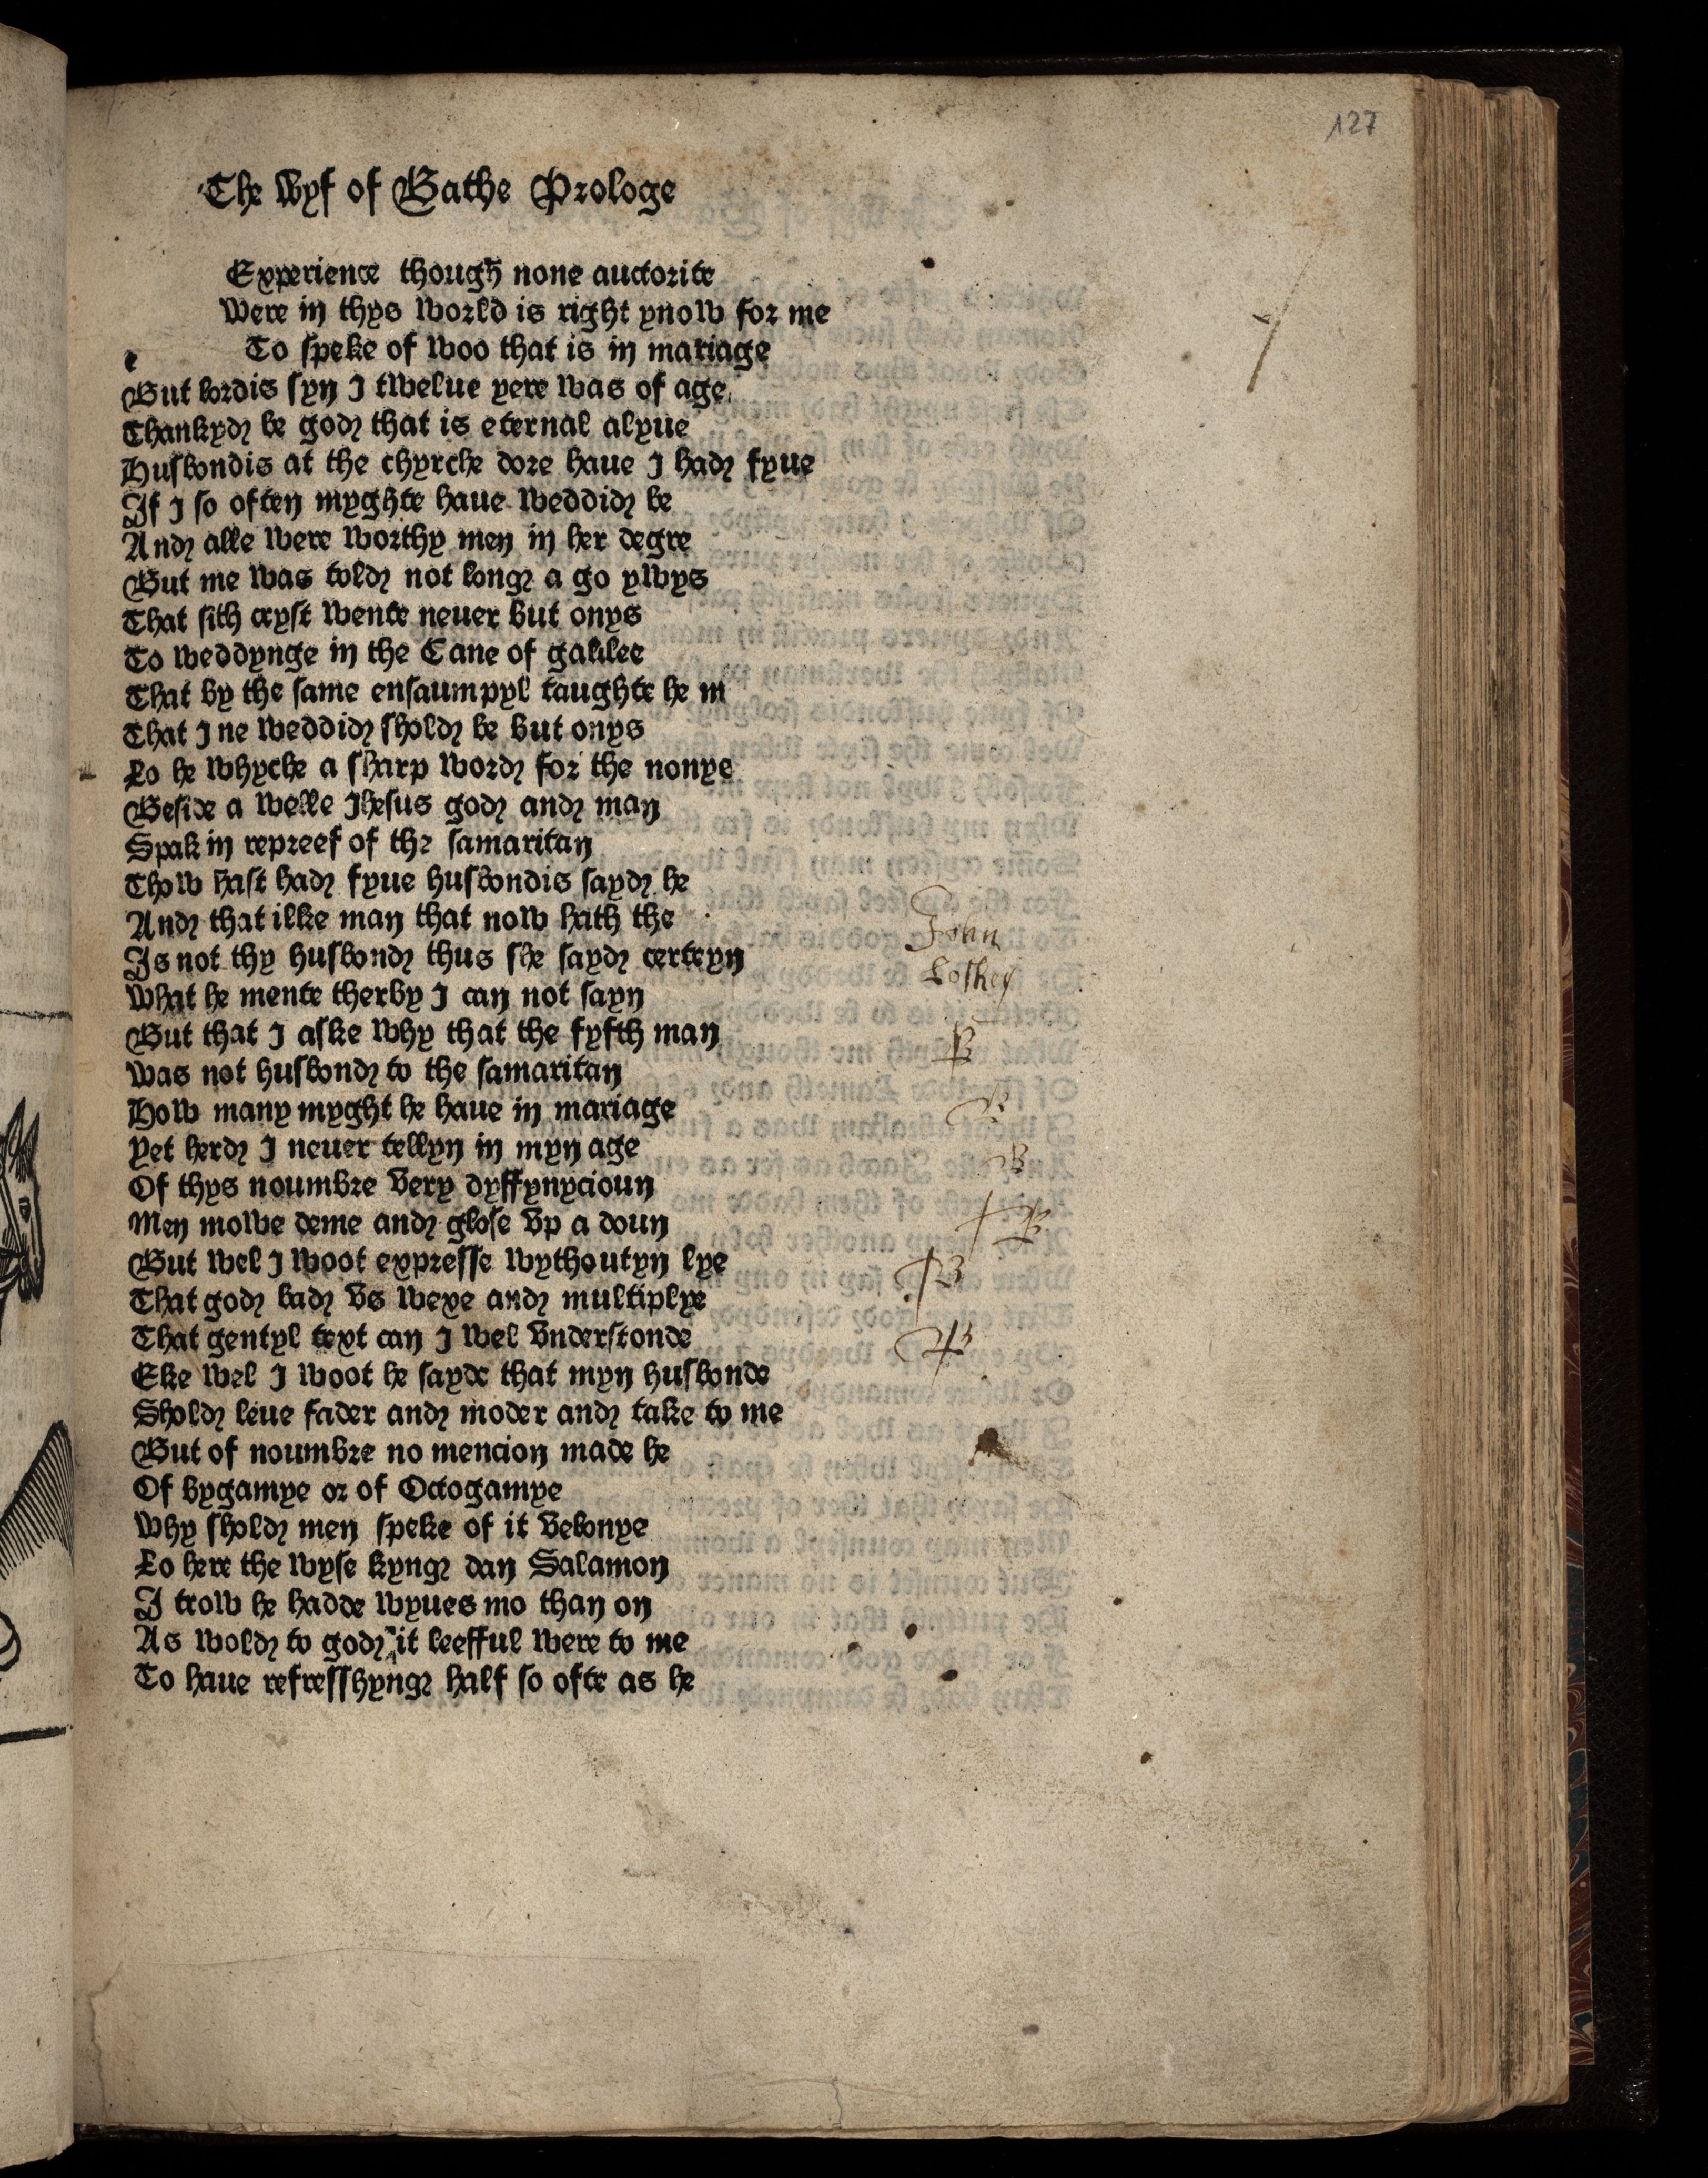 127
The Wyf of Bathe Prologe
Experience though none auctorite
Were in thys world is right ynow for me
To speke of woo that is in mariage
e
But lordis syn I twelue yere was of age
Thankyd be god that is eternal alyue
Husbondis at the chyrche dore haue I had fyue
If I so often myghte haue weddid be
And alle were worthy men in her degre
But me was told not long a go ywys
That sith cryst wente neuer but onys
To weddynge in the Cane of galilee
That by the same ensaumpyl taughte he m
That I ne weddid shold be but onys
Lo he whyche a sharp word for the nonye
Beside a welle Ihesus god and man
Spak in repreef of the samaritan
Thow hast had fyue husbondis sayd he
And that ilke man that now hath the
Is not thy husbond thus she sayd certeyn
What he mente therby I can not sayn
But that I aske why that the fyfth man
Was not husbond to the samaritan
How many myght he haue in mariage
Yet herd I neuer tellyn in myn age
Of thys noumbre very dyffynycioun
Men mowe deme and glose vp a doun
But wel I woot expresse wythoutyn lye
That god bad vs wexe and multiplye
That gentyl text can I wel vnderstonde
Eke wel I woot he sayde that myn husbonde
Shold leue fader and moder and take to me
But of noumbre no mencion made he
Of bygamye or of Octogamye
Why shold men speke of it velonye
Lo here the wyse kyng dan Salamon
I trow he hadde wyues mo than on
As wold to god it leefful were to me
To haue refresshyng half so ofte as he
John